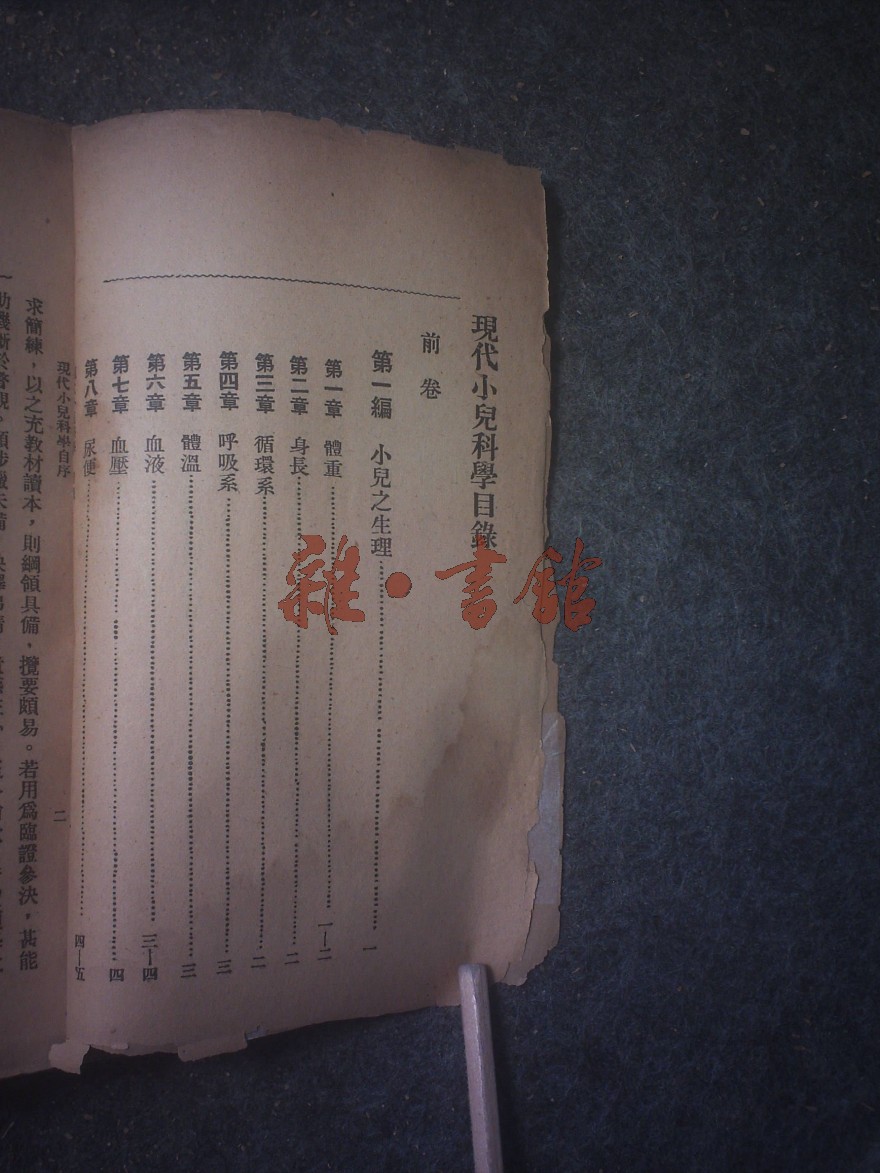 現代小兒科學目錄
前卷
第一編 小兒之生理……一
第一章 體重……一—二
第二章 身長……二
第三章 循環系……二
第四章 呼吸系……三
第五章 體溫……三
第六章 血液……三—四
第七章 血壓……四
第八章 尿便……四—五
現代小兒科學自序 二
求簡練，以之充教材讀本，則綱領具備，攬要頗易。若用爲臨證參決，甚能
雜·書館